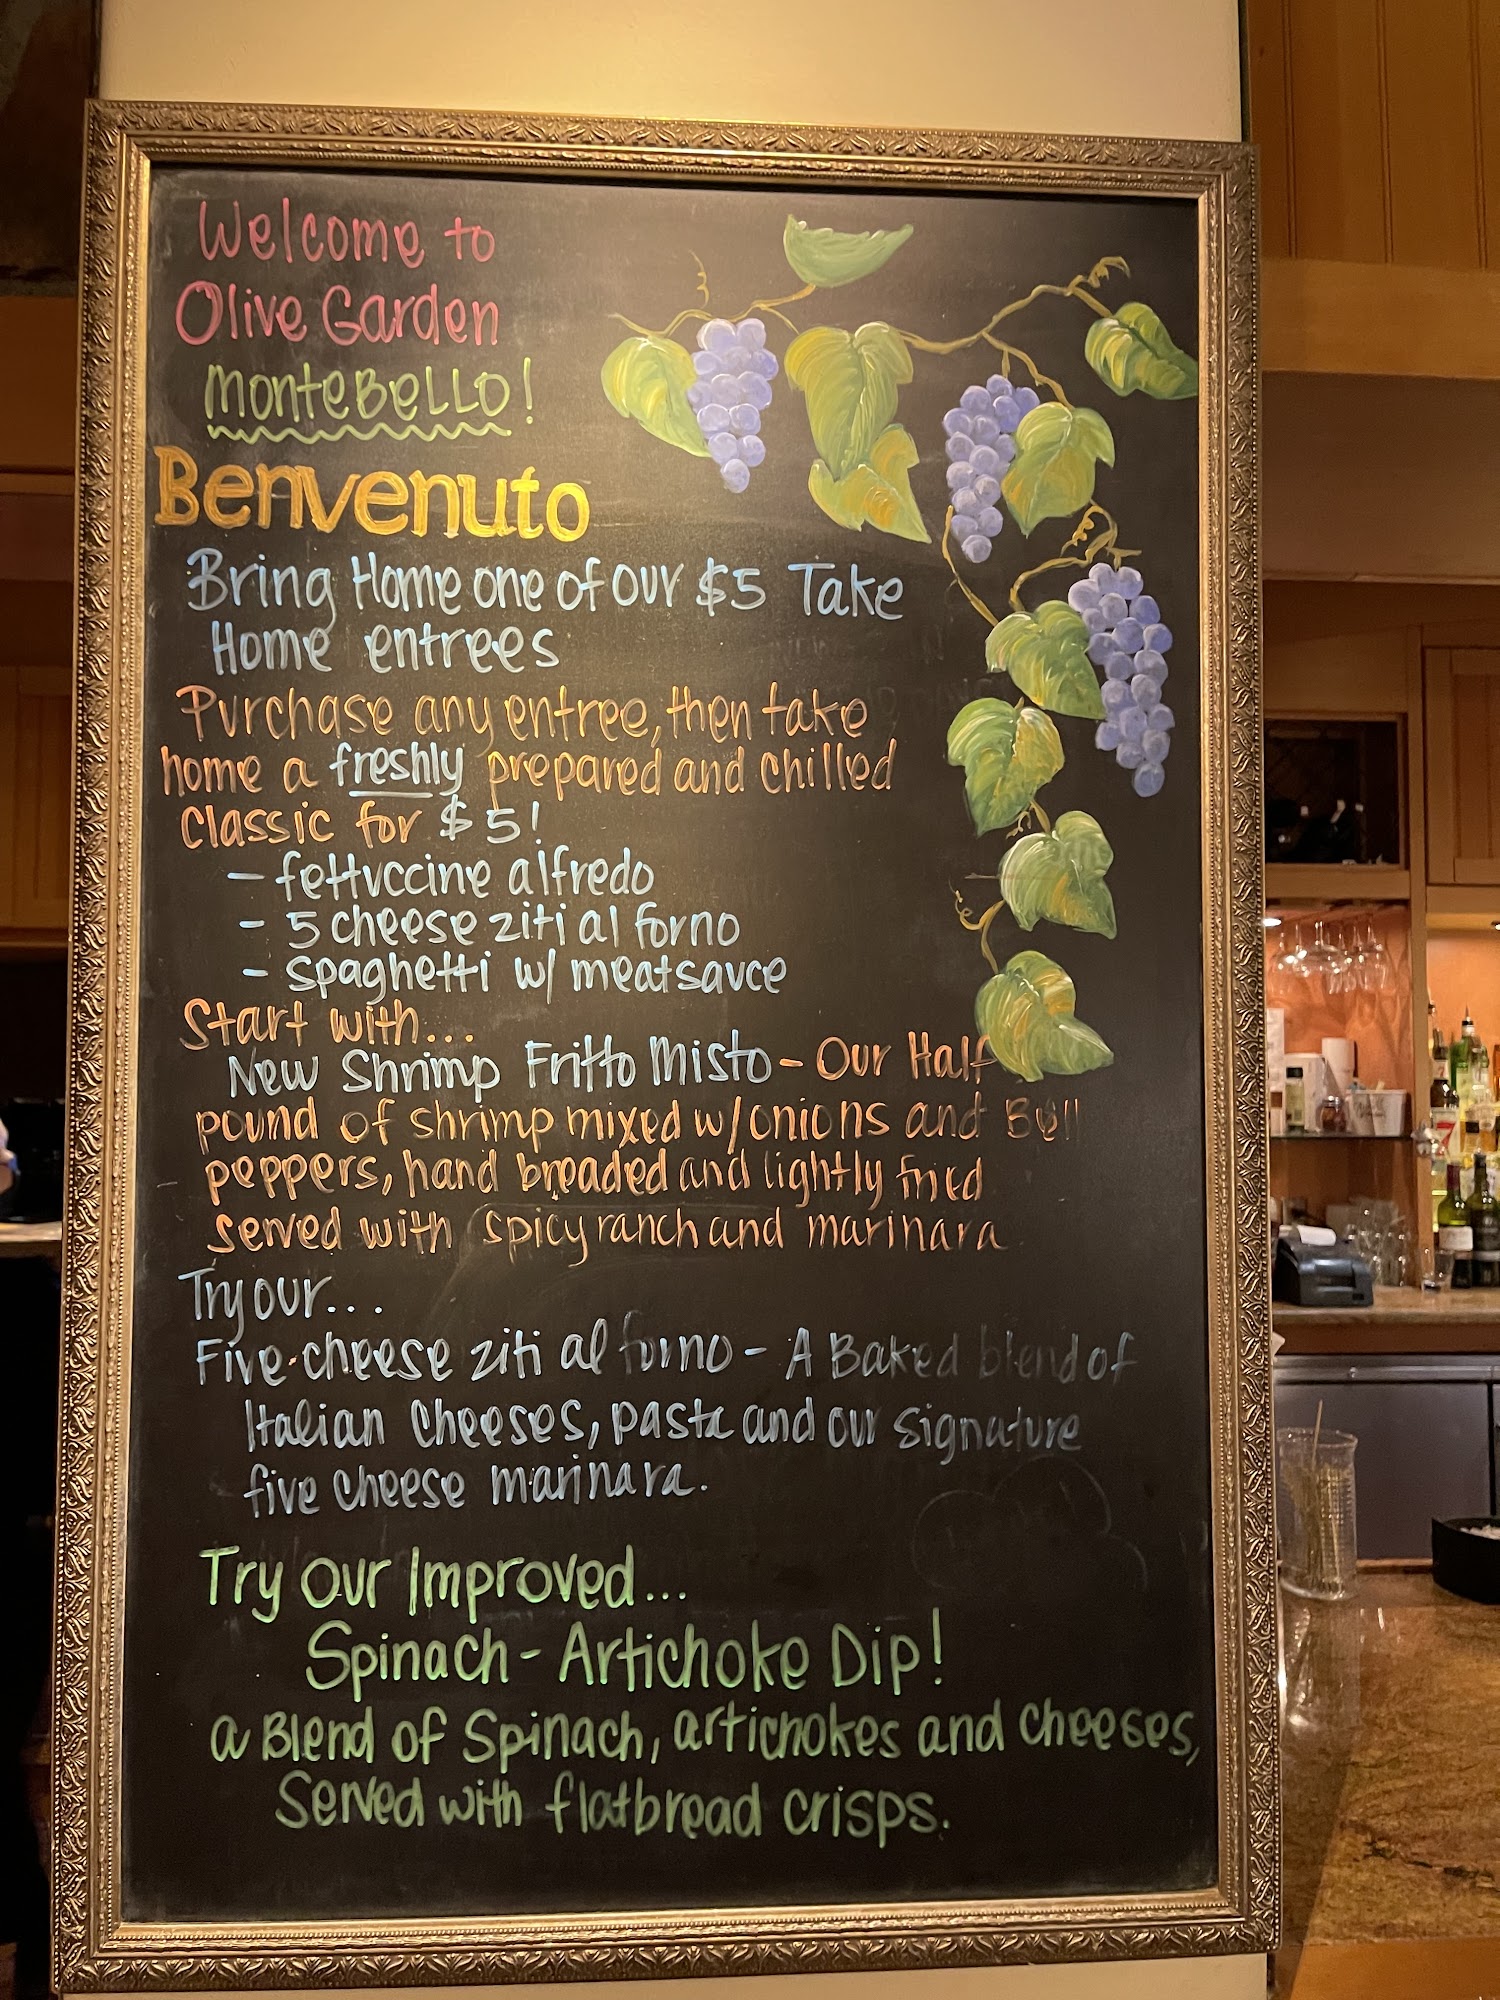 Welcome to
Olive Garden
MonteBeLLO!
Benvenuto
Bring Home one of our $5 Take
Home entrees
Purchase any entree, then take
home a freshly prepared and chilled
Classic for $5!
- fettuccine alfredo
- 5 cheese ziti al forno
- spaghetti w/ meatsauce
Start with...
New Shrimp Fritto Misto - Our Half
pound of shrimp mixed w/onions and Bell
peppers, hand breaded and lightly fried
served with spicy ranch and marinara
Try our...
Five cheese ziti al forno - A Baked blend of
Italian Cheeses, pasta and our signature
five cheese marinara.
Try Our Improved...
Spinach-Artichoke Dip!
a Blend of Spinach, artichokes and cheeses,
Served with flatbread crisps.